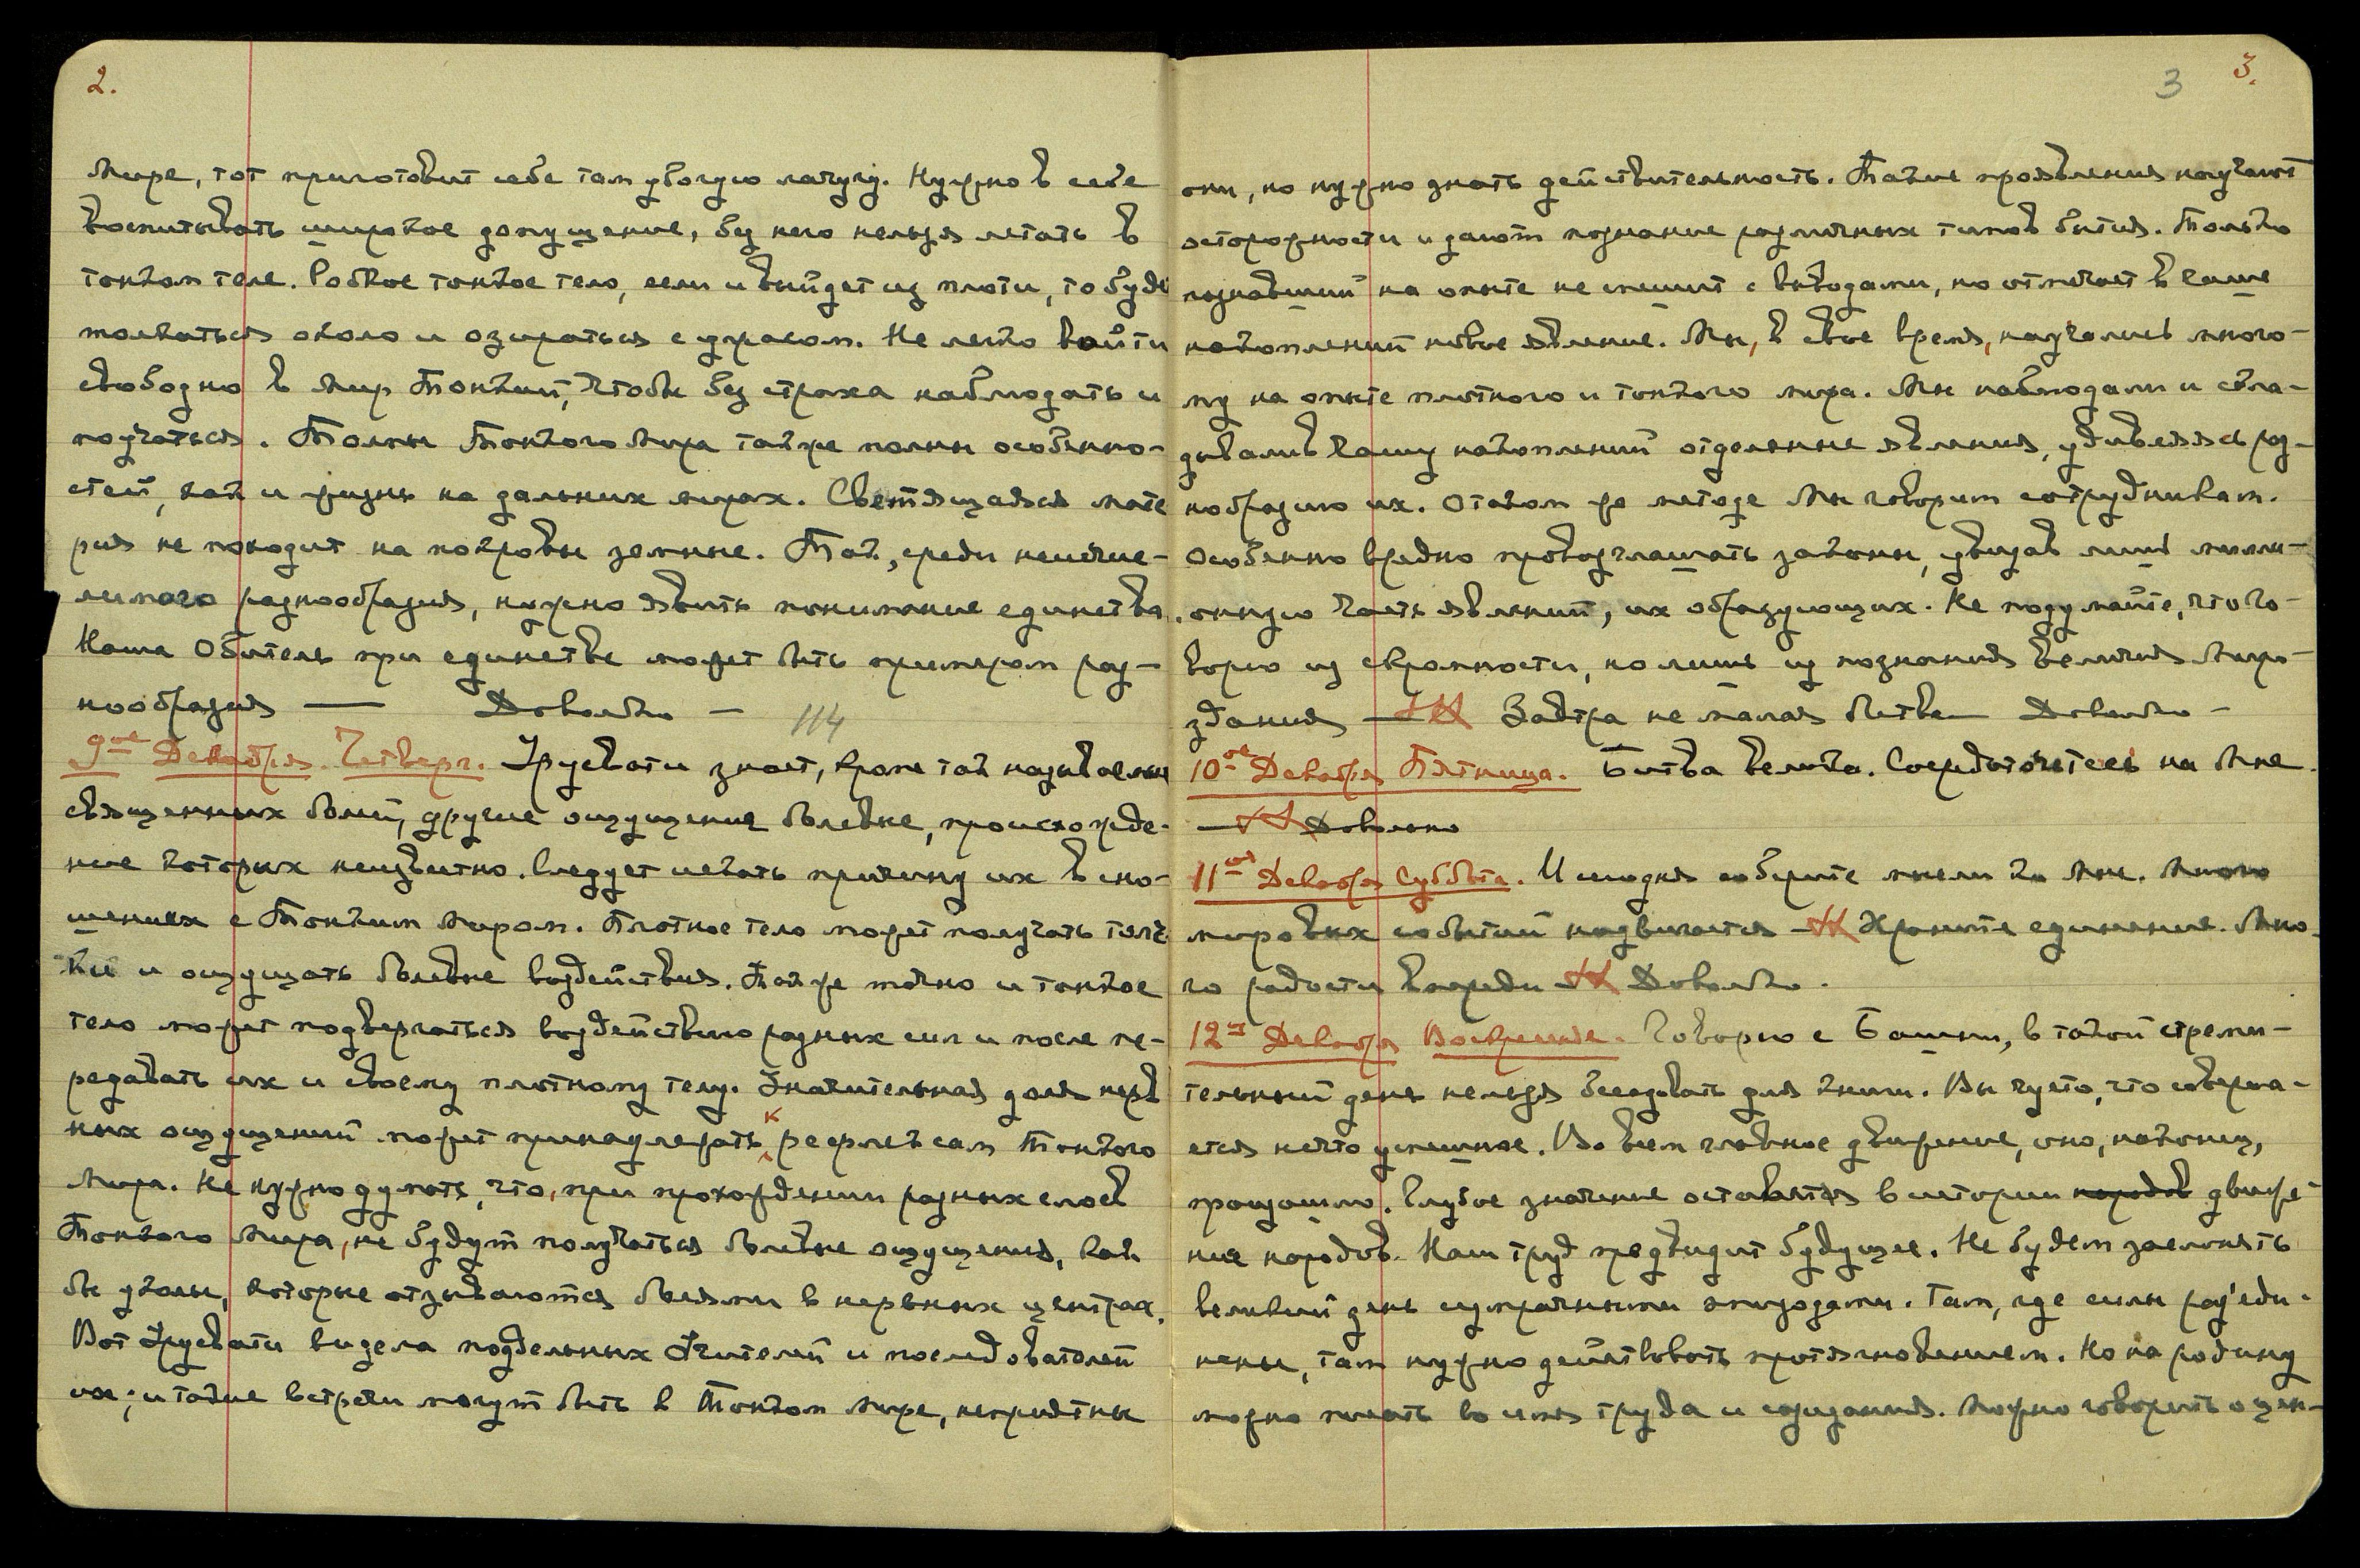 2.
мире, тот приготовит себе там убогую лачугу. Нужно в себе
воспитывать широкое допущение, без него нельзя летать в
тонком теле. Робкое тонкое тело, если и выйдет из плоти, то будет
толкаться около и озираться с ужасом. Не легко войти
свободно в Мир Тонкий, чтобы без страха наблюдать и
поучаться. Толпы Тонкого Мира также полны особенно-
стей, как и жизнь на дальних мирах. Светящаяся мате
рия не походит на покровы земные. Так, среди неисчис-
лимого разнообразия, нужно явить понимание единства.
Наша Обитель при единстве может быть примером раз-
нообразия — Довольно —
114
9ое Декабря. Четверг. Урусвати знает, кроме так называемых
священных болей, другие ощущения болевые, происхожде-
ние которых неизвестно. Следует искать причину их в сно-
шениях с Тонким Миром. Плотное тело может получать толч
ки и ощущать болевые воздействия. Так же точно и тонкое
тело может подвергаться воздействию разных сил и после пе-
редавать их и своему плотному телу. Значительная доля нерв
ных ощущений может принадлежать к рефлексам Тонкого
Мира. Не нужно думать, что, при прохождении разных слоев
Тонкого Мира, не будут получаться болевые ощущения, как
бы уколы, которые отзываются болями в нервных центрах.
Вот Урусвати видела поддельных Учителей и последователей
их; и такие встречи могут быть в Тонком Мире, неприятны
3
3.
они, но нужно знать действительность. Такие проявления научают
осторожности и дают познание различных типов бытия. Только
познавший на опыте не спешит с выводами, но отмечает в Чаше
накоплений новое явление. Мы, в свое время, научались много-
му на опыте плотного и тонкого мира. Мы наблюдали и скла-
дывали в Чашу накоплений отдельные явления, удивляясь раз-
нообразию их. О таком же методе Мы говорим сотрудникам.
Особенно вредно провозглашать законы, увидав лишь милли-
онную часть явлений, их образующих. Не подумайте, что го-
ворю из скромности, но лишь из познания величия Миро-
здания — Завтра не малая битва — Довольно —
10ое Декабря Пятница. Битва велика. Сосредоточьтесь на Мне.
— Довольно
11ое Декабря Суббота. И сегодня соберите мысли ко Мне. Много
мировых событий надвигается — Храните единение. Мно-
го радости впереди — Довольно.
12ое Декабря Воскресенье. Говорю с Башни, в такой стреми-
тельный день нельзя беседовать для книги. Вы чуете, что соверша-
ется нечто успешное. Во всем главное движение, оно, наконец,
произошло. Глубое значение оставится в истории народов движе-
ние народов. Наш труд предвидит будущее. Не будем заслонять
великий день сумрачными эпизодами. Там, где силы раз'еди-
нены, там нужно действовать притяжением. Но на родину
можно писать во имя труда и созидания. Можно говорить о цен-